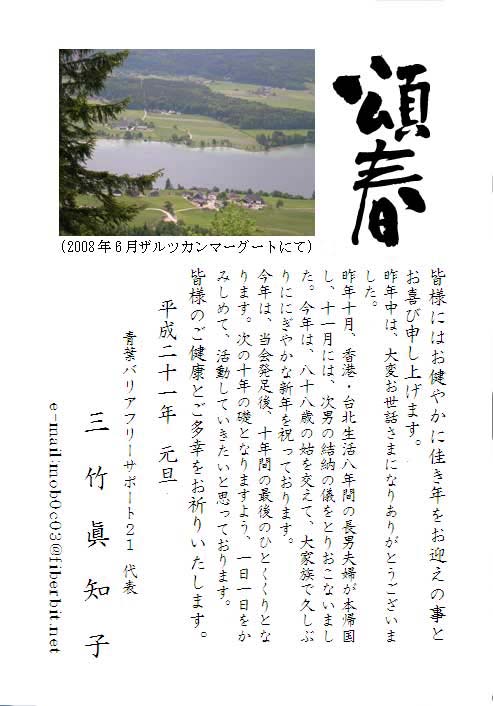 頌春
(2008年6月ザルツカンマーグートにて)
皆様にはお健やかに佳き年をお迎えの事と
お喜び申し上げます。
昨年中は、大変お世話さまになりありがとうございま
した。
昨年十月、香港・台北生活八年間の長男夫婦が本帰国
し、十一月には、次男の結納の儀をとりおこないまし
た。今年は、八十八歳の姑を交えて、大家族で久しぶ
りににぎやかな新年を祝っております。
今年は、当会発足後、十年間の最後のひとくくりとな
ります。次の十年の礎となりますよう、一日一日をか
みしめて、活動していきたいと思っております。
皆様のご健康とご多幸をお祈りいたします。
平成二十一年 元旦
青葉バリアフリーサポート21 代表
三竹眞知子
e-mail:mob0c03@fiberbit.net